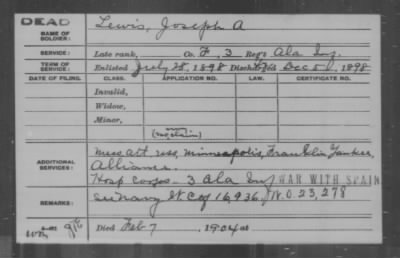 DEAD
NAME OF SOLDIER: Lewis, Joseph A
SERVICE: Late rank, Co. F, 3 Reg't Ala Inf.
TERM OF SERVICE: Enlisted July 28, 1898 Discharged Dec 5, 1898
DATE OF FILING. CLASS. APPLICATION NO. LAW. CERTIFICATE NO.
Invalid,
Widow,
Minor,
(no claim)
ADDITIONAL SERVICES: Mess Att, ress, Minneapolis, Franklin, Yankee,
Alliance.
Hosp corps - 3 Ala Inf WAR WITH SPAIN
REMARKS: see Navy W C of 16,936. W.O. 23,278
Died Feb 7, 1904 at